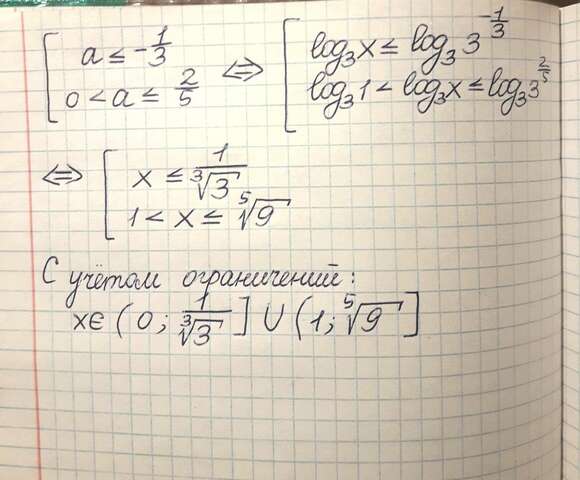 [ a ≤ -1/3
0 < a ≤ 2/5 ⇔ [ log₃x ≤ log₃3^(-1/3)
log₃1 < log₃x ≤ log₃3^(2/5)
⇔ [ x ≤ 1/∛3
1 < x ≤ ⁵√9
С учётом ограничений:
x∈(0; 1/∛3] ∪ (1; ⁵√9]